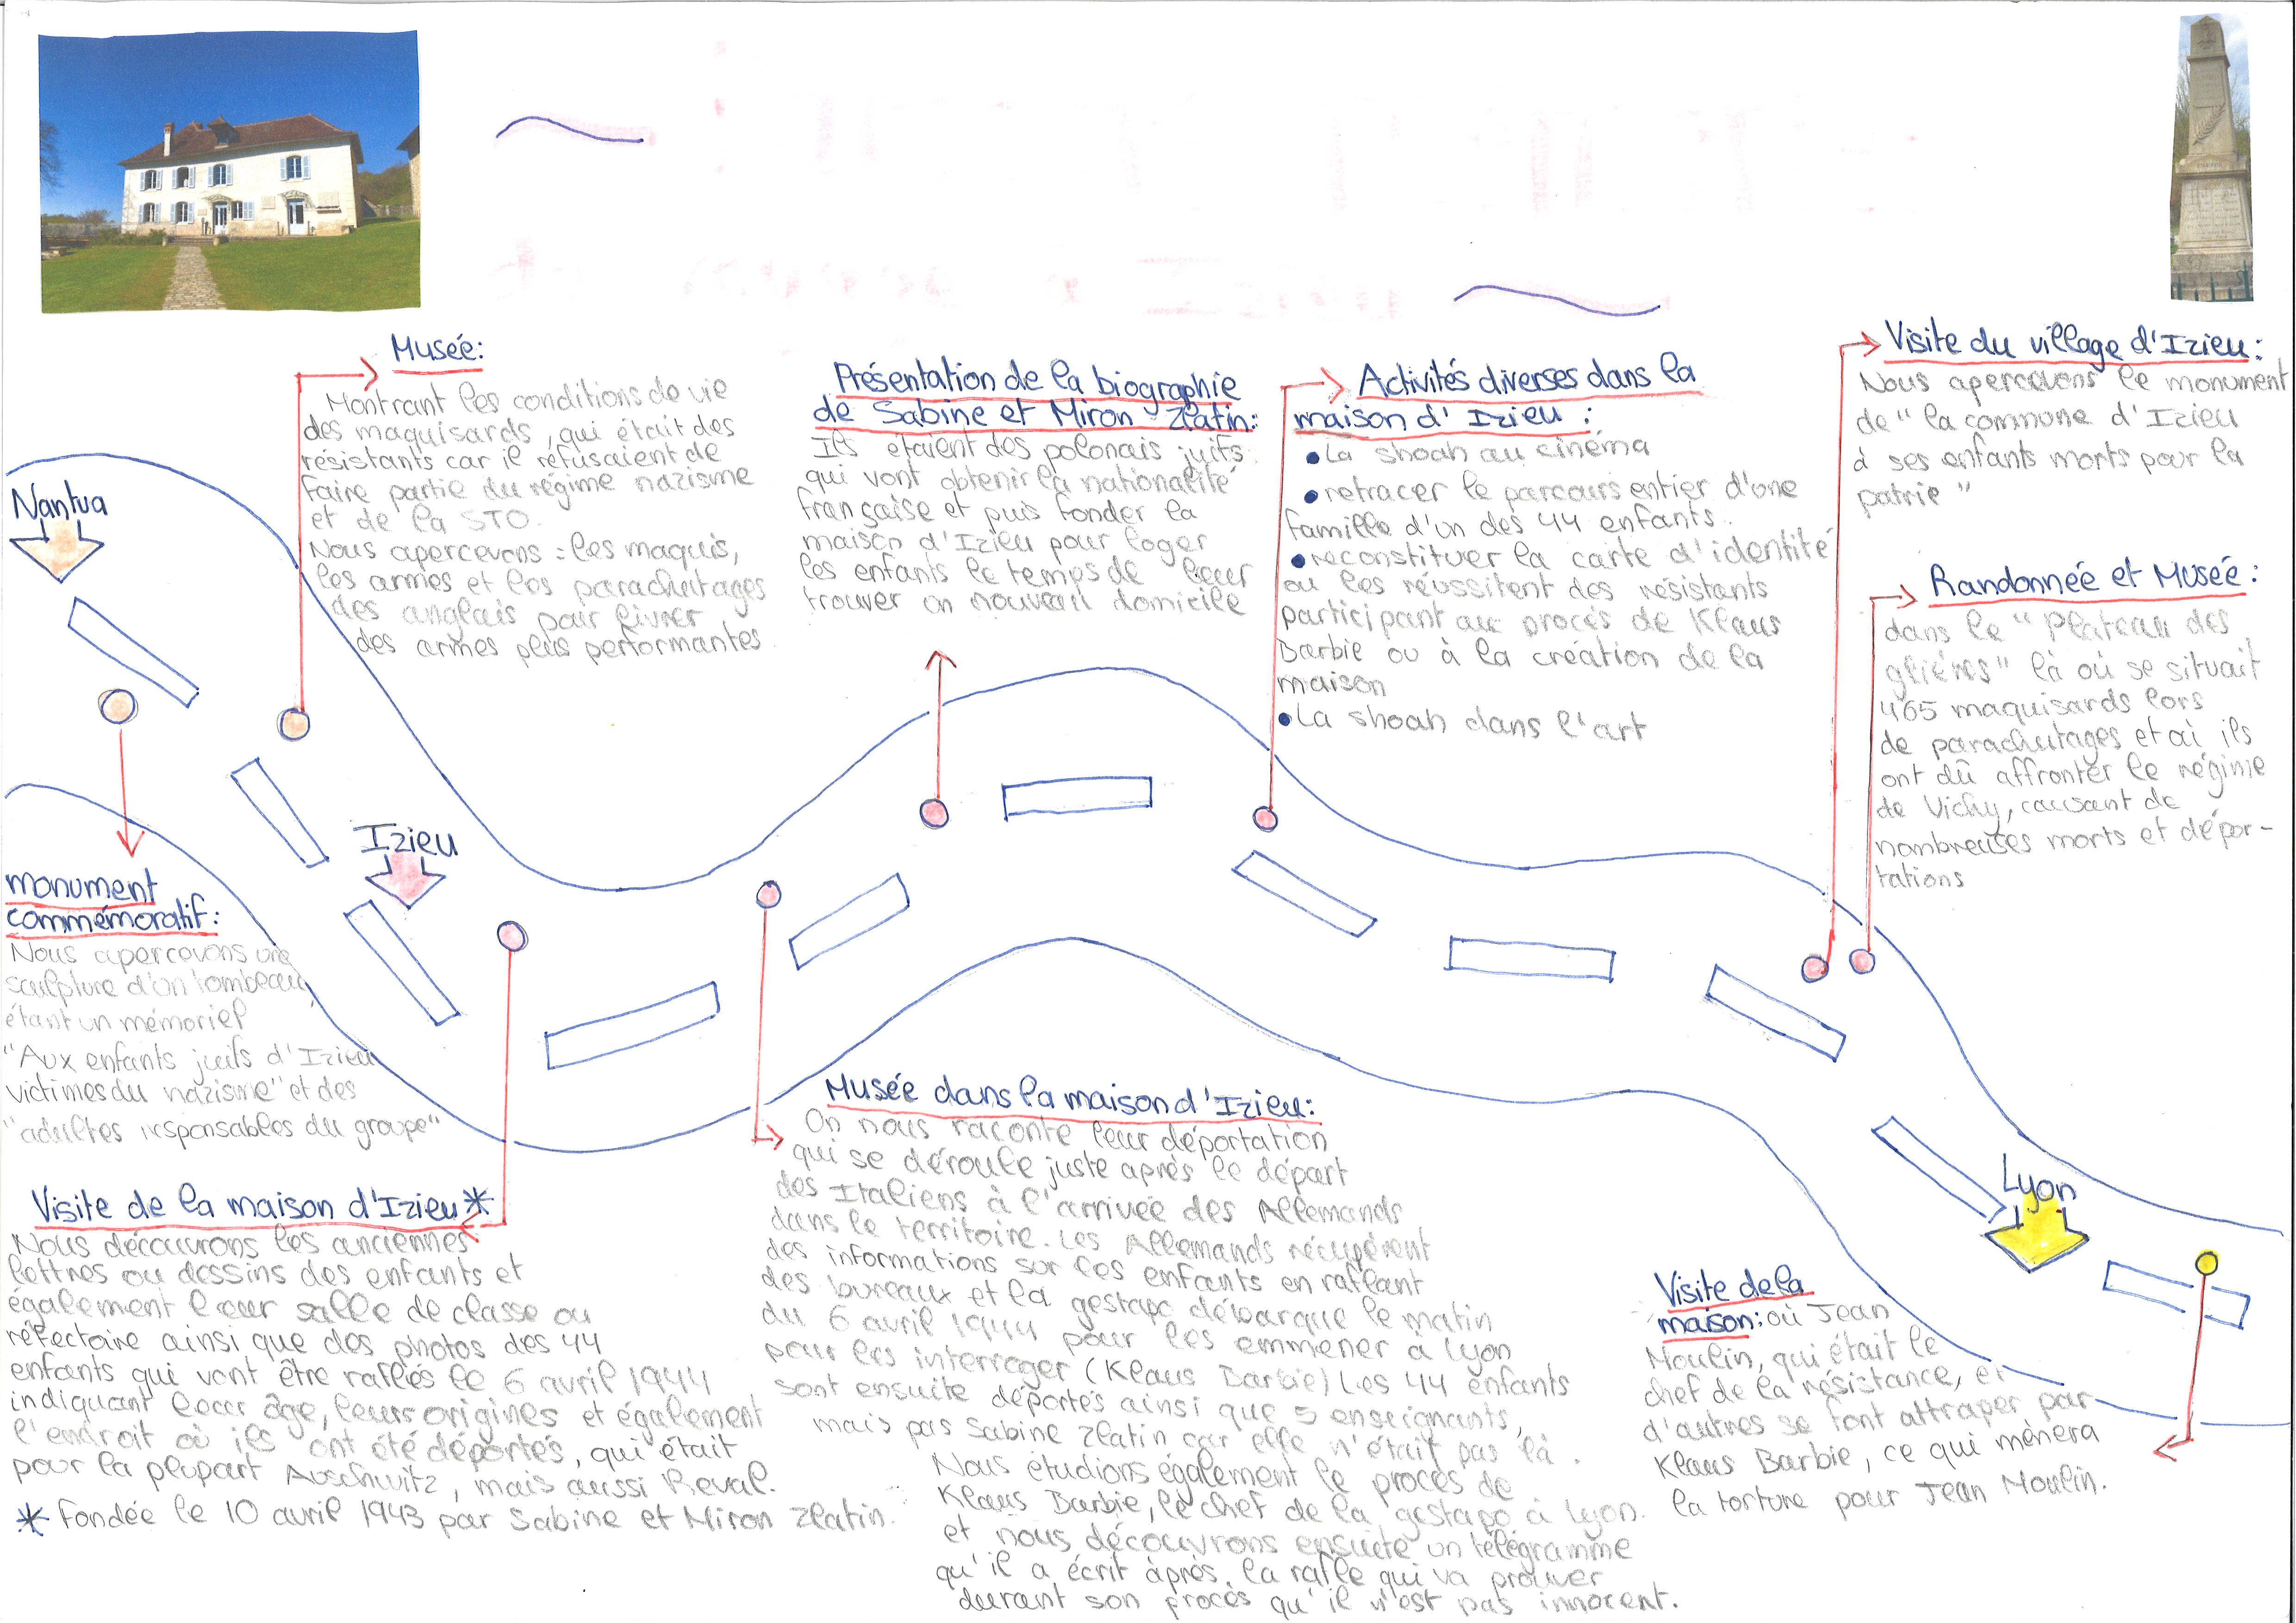 Nantua
monument
commémoratif:
Nous apercevons une
sculpture d'un tombeau,
étant un mémoriel
"Aux enfants juifs d'Izieu
victimes du nazisme" et des
"adultes responsables du groupe"
Musée:
Montrant les conditions de vie
des maquisards, qui était des
résistants car il refusaient de
faire partie du régime nazisme
et de la STO.
Nous apercevons : les maquis,
les armes et les parachutages
des anglais pour livrer
des armes plus performantes
Izieu
Visite de la maison d'Izieu*
Nous découvrons les anciennes
lettres ou dessins des enfants et
également leur salle de classe ou
réfectoire ainsi que des photos des 44
enfants qui vont être raflés le 6 avril 1944
indiquant leur âge, leurs origines et également
l'endroit où ils ont été déportés, qui était
pour la plupart Auschwitz, mais aussi Reval.
* Fondée le 10 avril 1943 par Sabine et Miron Zlatin.
Musée dans la maison d'Izieu:
On nous raconte leur déportation
qui se déroule juste après le départ
des Italiens à l'arrivée des Allemands
dans le territoire. Les Allemands récupérent
des informations sur les enfants en raflant
des bureaux et la gestapo débarque le matin
du 6 avril 1944 pour les emmener à Lyon
pour les interroger (Klaus Barbie) Les 44 enfants
sont ensuite déportés ainsi que 5 enseignants,
mais pas Sabine Zlatin car elle n'était pas là.
Nous étudions également le procès de
Klaus Barbie, le chef de la gestapo à Lyon.
et nous découvrons ensuite un télégramme
qu'il a écrit après la rafle qui va prouver
durant son procès qu'il n'est pas innocent.
Présentation de la biographie
de Sabine et Miron Zlatin:
Ils étaient des polonais juifs
qui vont obtenir la nationalité
française et puis fonder la
maison d'Izieu pour loger
les enfants le temps de leur
trouver un nouveau domicile
Activités diverses dans la
maison d'Izieu :
• La shoah au cinéma
• retracer le parcours entier d'une
famille d'un des 44 enfants.
• reconstituer la carte d'identité
ou les réussitent des résistants
participant au procés de Klaus
Barbie ou à la création de la
maison
• La shoah dans l'art
Visite du village d'Izieu:
Nous apercevons le monument
de "la commune d'Izieu
à ses enfants morts pour la
patrie"
Randonnée et Musée:
dans le "Plateau des
glières" là où se situait
465 maquisards lors
de parachutages et où ils
ont dû affronter le régime
de Vichy, causant de
nombreuses morts et dépor-
tations
Lyon
Visite de la
maison: où Jean
Moulin, qui était le
chef de la résistance, et
d'autres se font attraper par
Klaus Barbie, ce qui mènera
la torture pour Jean Moulin.